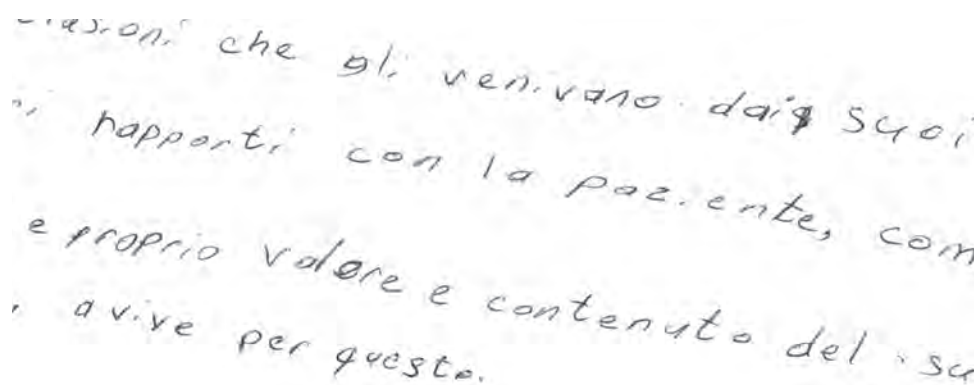 che gli venivano dai suoi
rapporti con la paziente, com
e proprio valore e contenuto del su
a vive per questo.